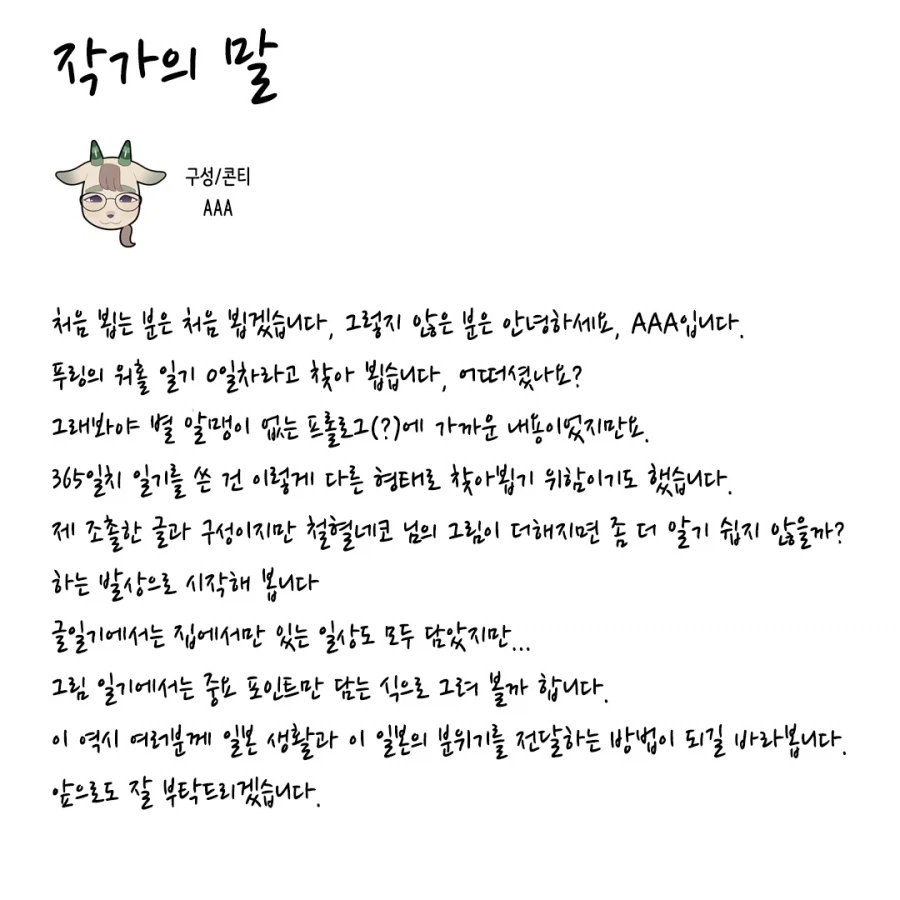 작가의 말
구성/콘티
AAA
처음 뵙는 분은 처음 뵙겠습니다, 그렇지 않은 분은 안녕하세요, AAA입니다.
푸링의 워홀 일기 0일차라고 찾아 뵙습니다, 어떠셨나요?
그래봐야 별 알맹이 없는 프롤로그(?)에 가까운 내용이었지만요.
365일치 일기를 쓴 건 이렇게 다른 형태로 찾아뵙기 위함이기도 했습니다.
제 조촐한 글과 구성이지만 철혈네코 님의 그림이 더해지면 좀 더 알기 쉽지 않을까?
하는 발상으로 시작해 봅니다
글일기에서는 집에서만 있는 일상도 모두 담았지만...
그림 일기에서는 중요 포인트만 담는 식으로 그려 볼까 합니다.
이 역시 여러분께 일본 생활과 이 일본의 분위기를 전달하는 방법이 되길 바라봅니다.
앞으로도 잘 부탁드리겠습니다.